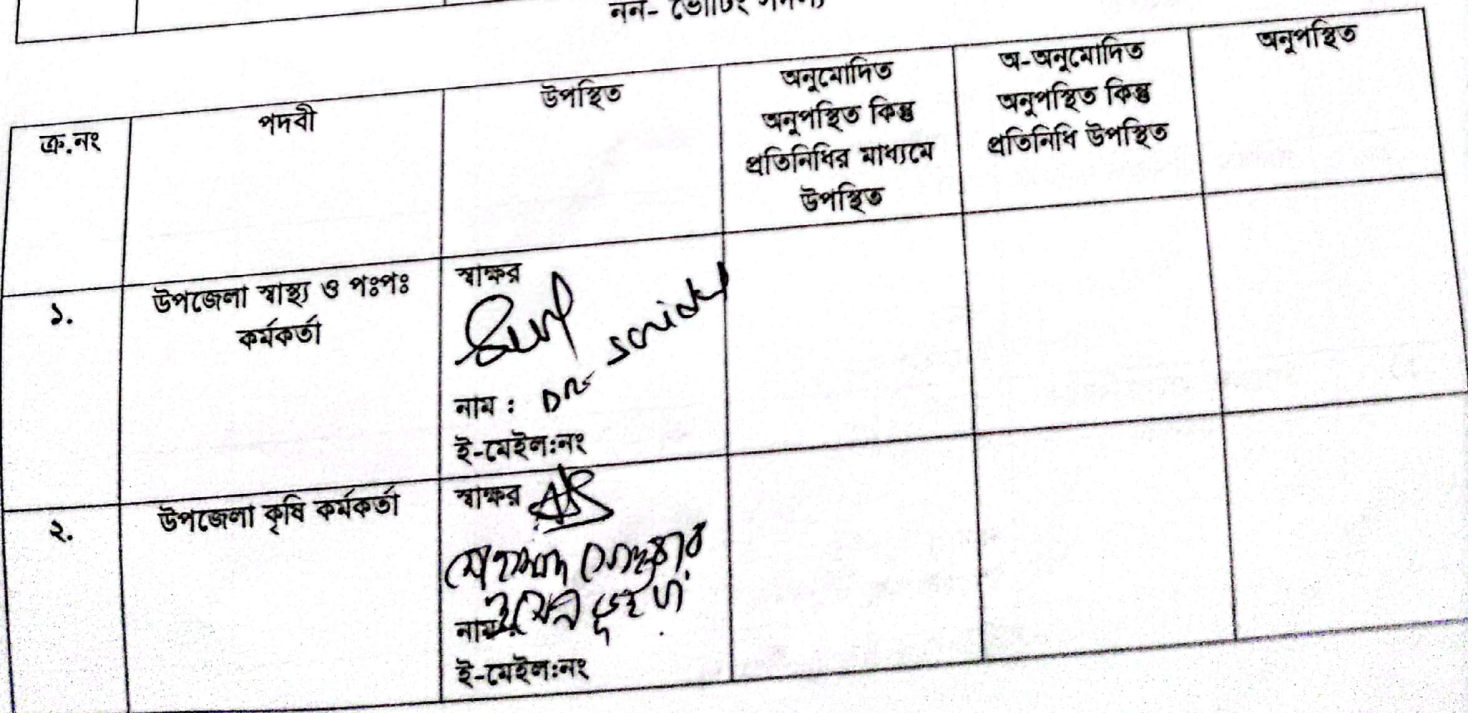 নন- ভোটিং সদস্য
ক্র.নং
পদবী
উপস্থিত
অনুমোদিত
অনুপস্থিত কিন্তু
প্রতিনিধির মাধ্যমে
উপস্থিত
অ-অনুমোদিত
অনুপস্থিত কিন্তু
প্রতিনিধি উপস্থিত
অনুপস্থিত
১.
উপজেলা স্বাস্থ্য ও পঃপঃ
কর্মকর্তা
স্বাক্ষর
নাম : Dr
ই-মেইল:নং
২.
উপজেলা কৃষি কর্মকর্তা
স্বাক্ষর
নাম
ই-মেইল:নং